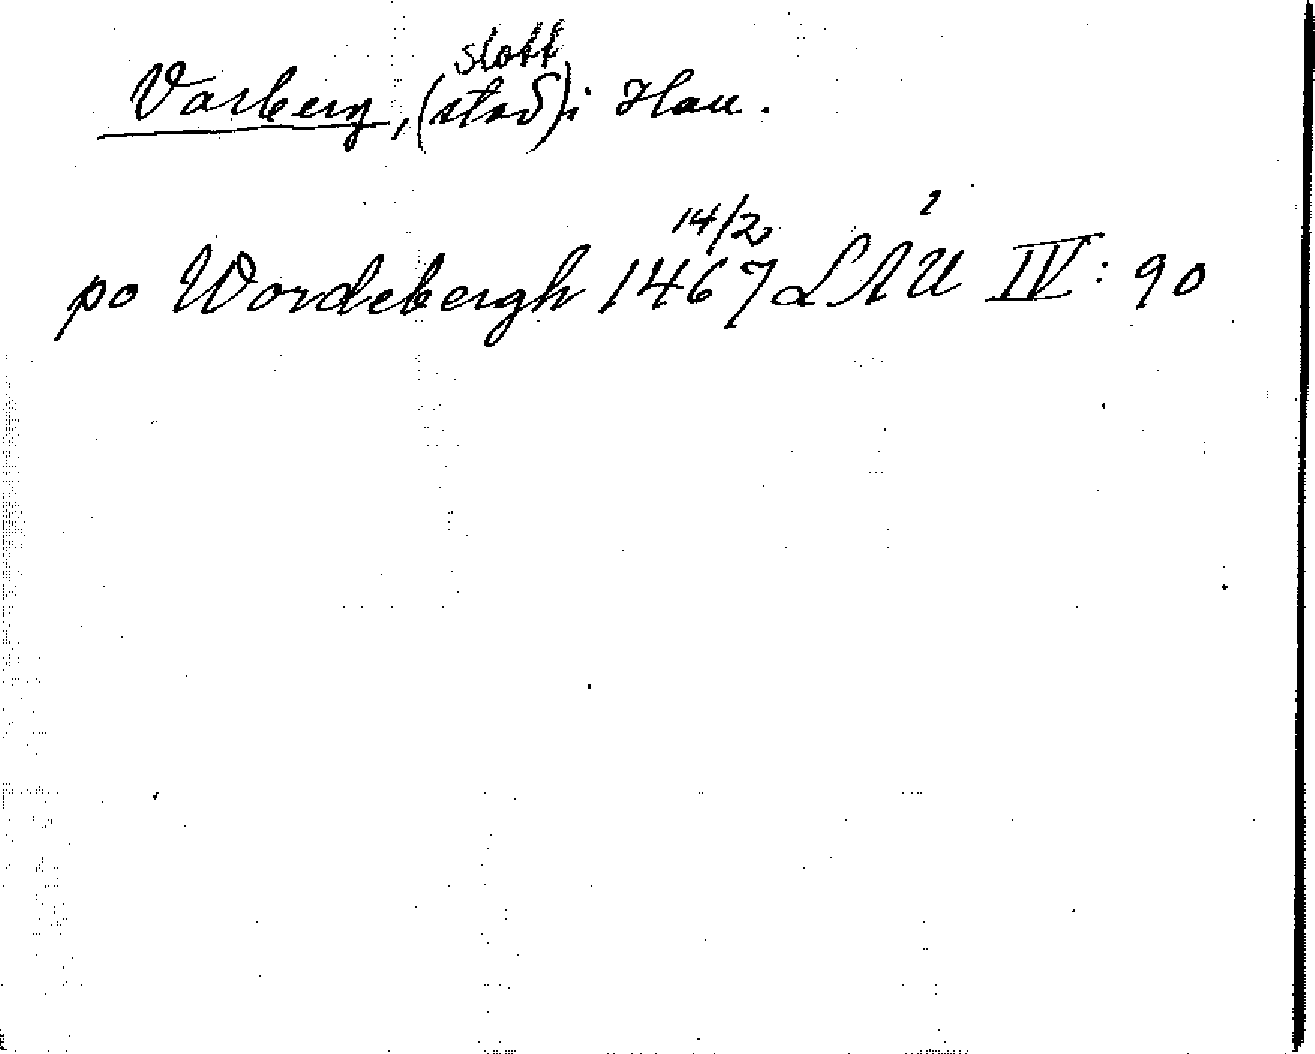 slott
Varberg, (stad) i Hall.
14/2 2
po Wordebergh 1467 LAU IV: 90